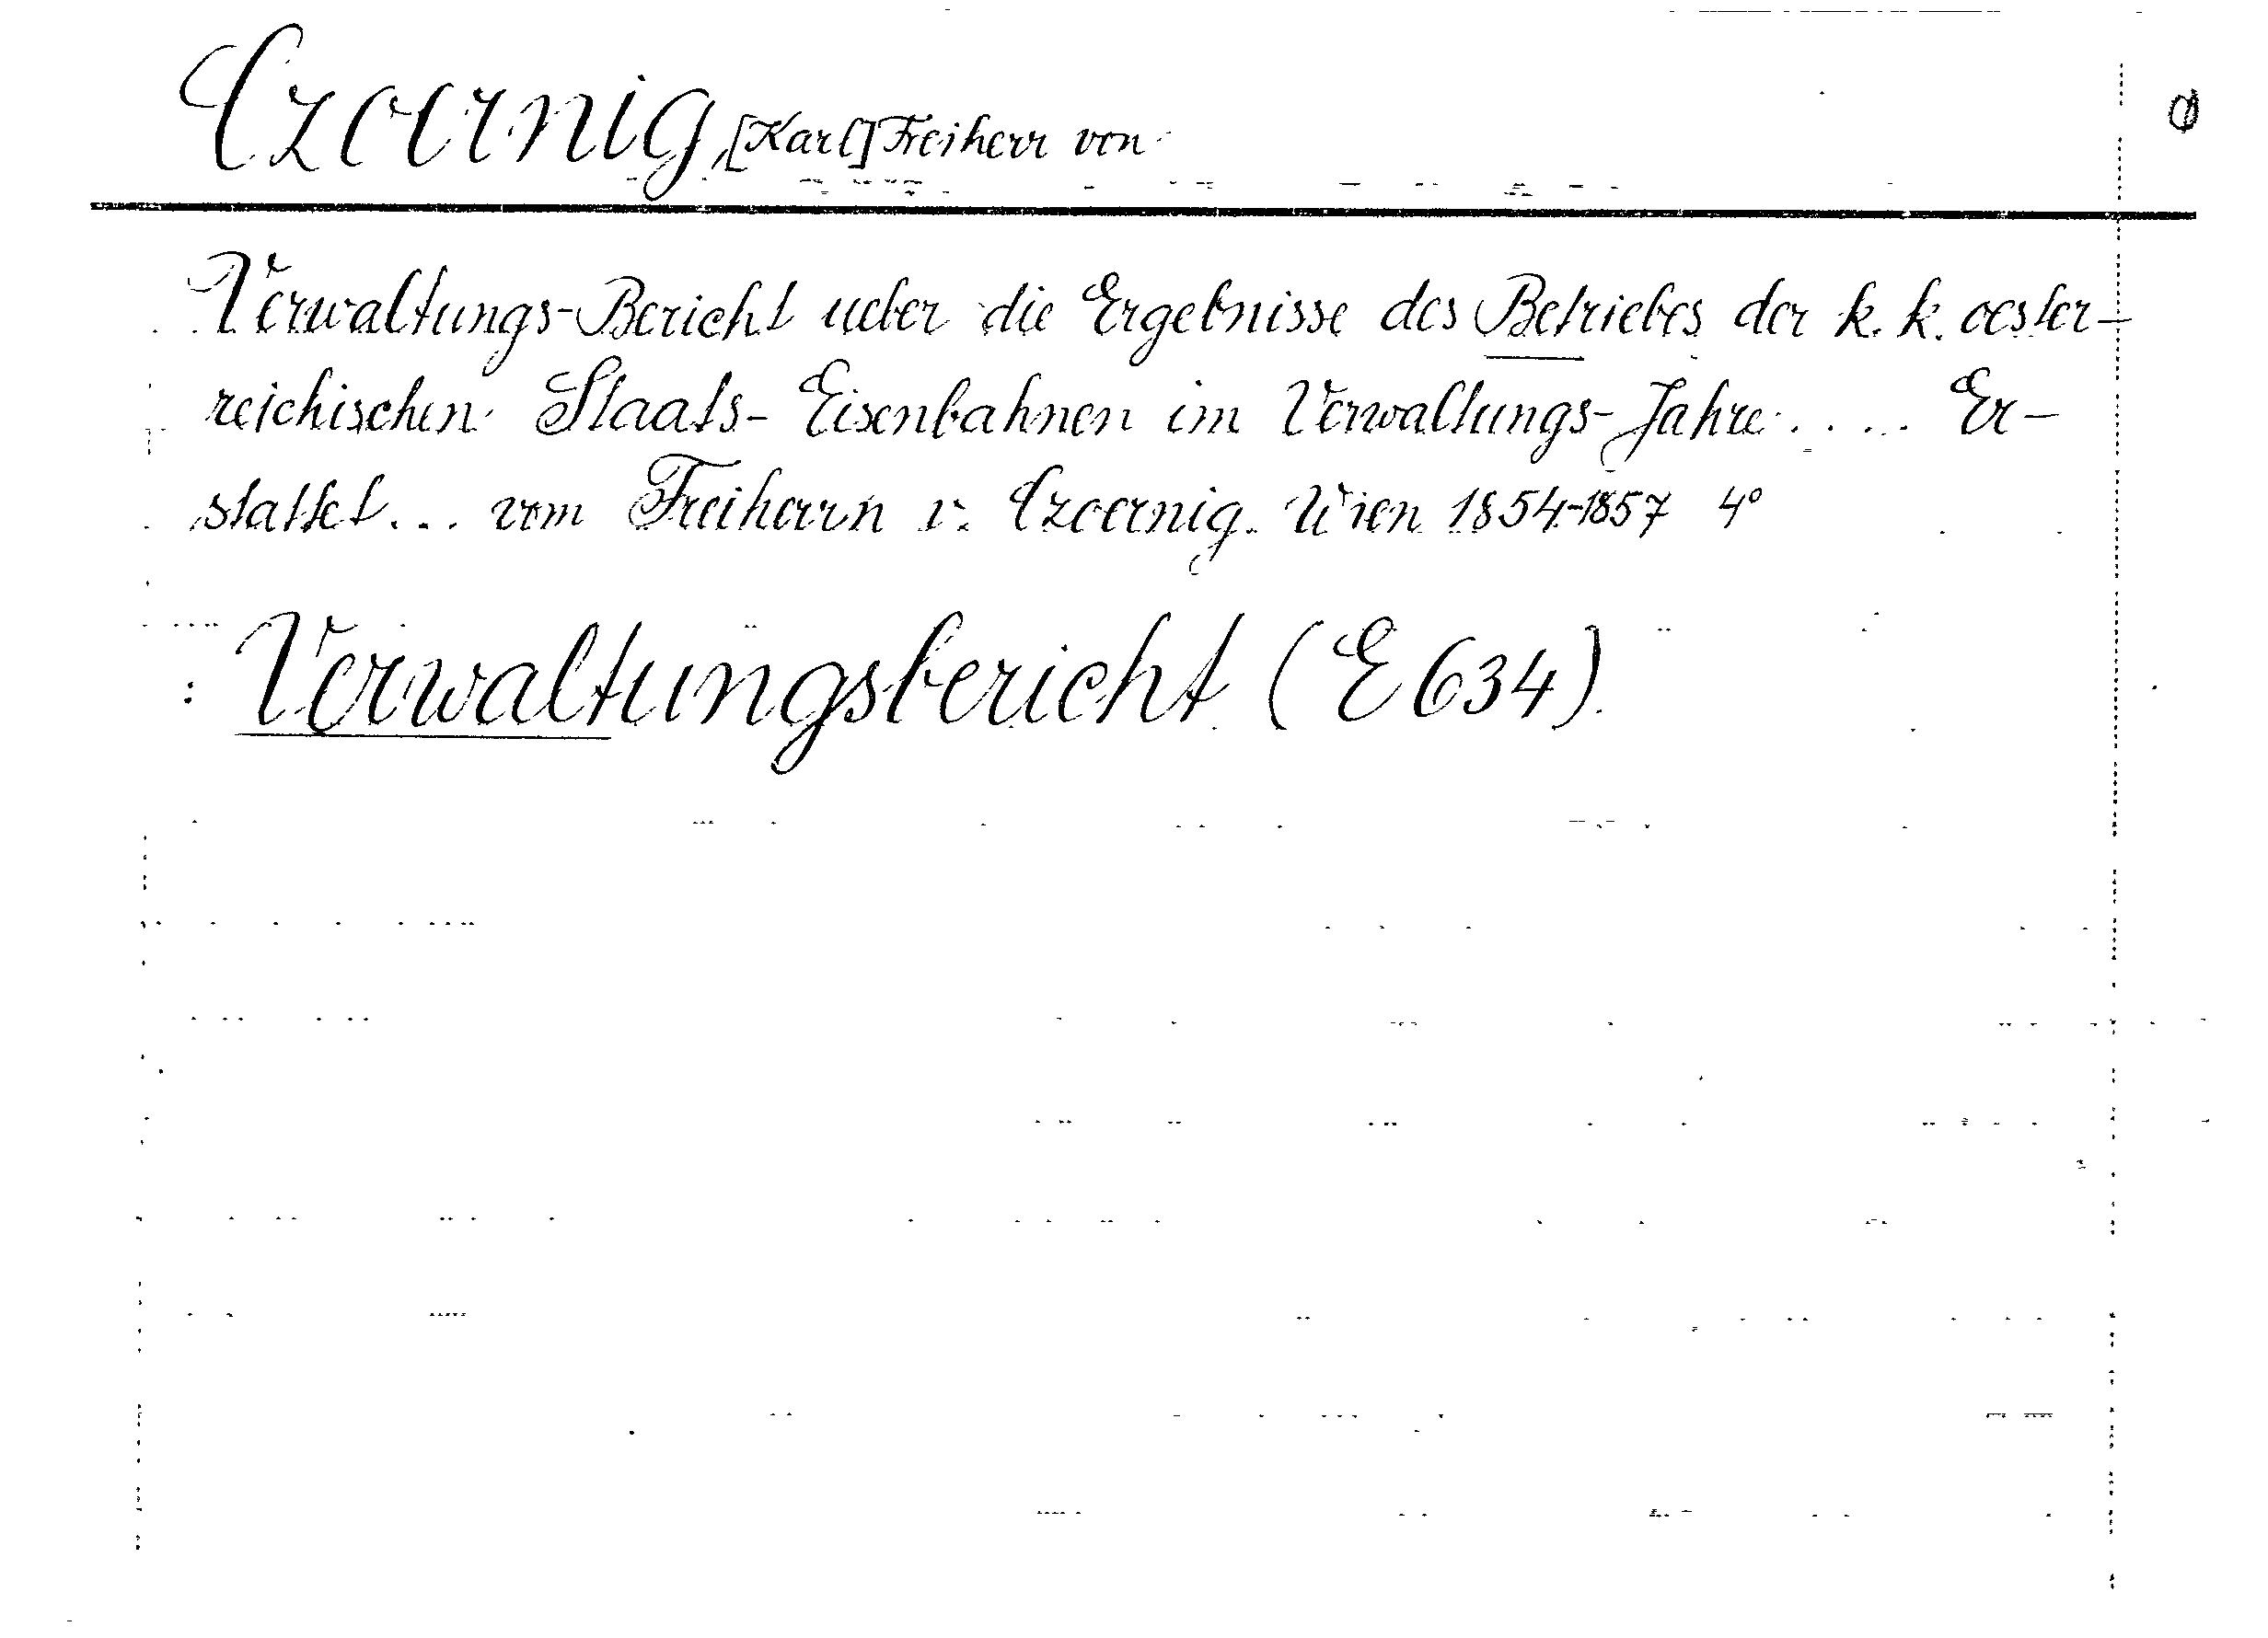 Czoernig, [Karl] Freiherr von
Verwaltungs-Bericht ueber die Ergebnisse des Betriebes der k. k. oester-
reichischen Staats-Eisenbahnen im Verwaltungs-Jahre .... Er-
stattet ... vom Freiherrn v. Czoernig. Wien 1854-1857 4°
Verwaltungsbericht (E 634).